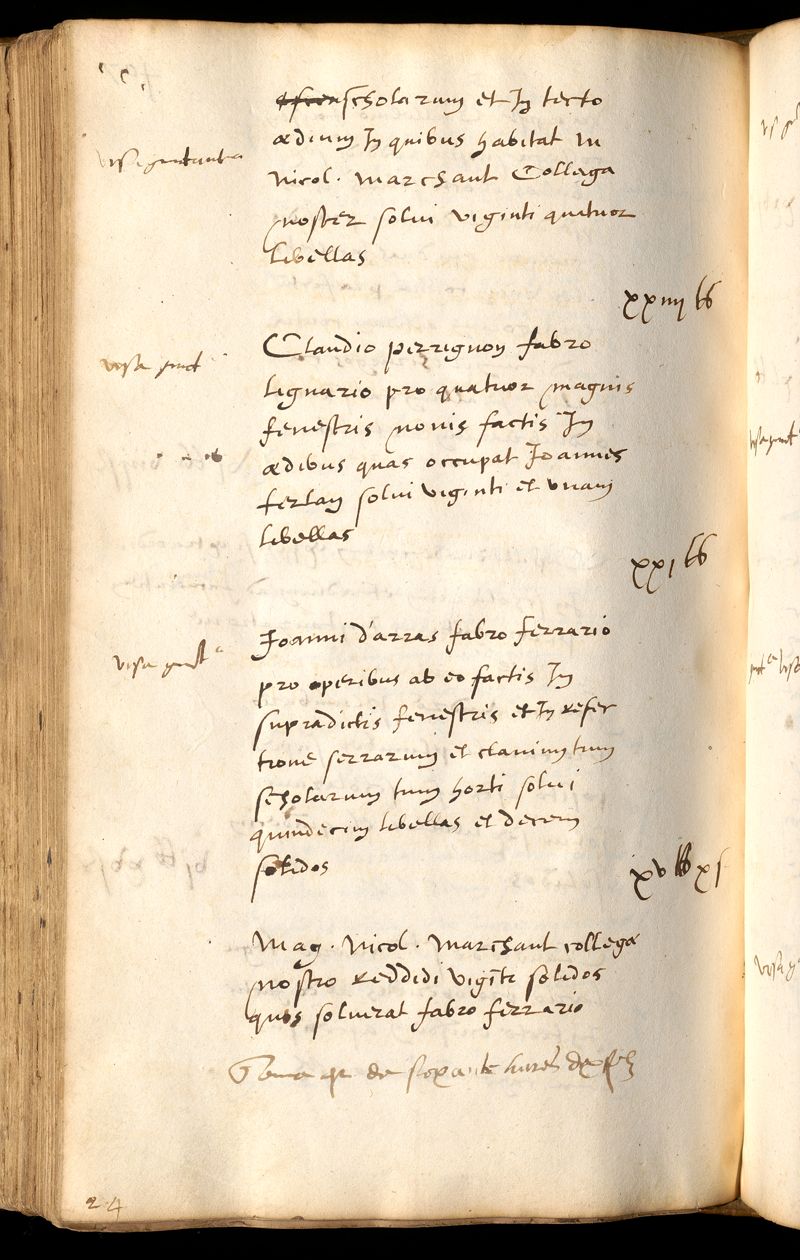 scholarum et In tecto
visa
ædium In quibus habitat M
Nicol. Marchant Collega
noster solui viginti quatuor
libellas
xxiiij lb
Claudio perregnon fabro
visa
lignario pro quatuor magnis
fenestris novis factis In
ædibus quas occupat Joannes
ferlan solui viginti et unam
libellas
xxj lb
Joanni d'arras fabro ferrario
visa
pro operibus ab eo factis In
supradictis fenestris et In refec
tione serrarum et clavium tum
scholarum tum horti solui
quindecim libellas et decem
solidos
xv lb x s
Mag. Nicol. Marchant collegæ
nostro reddidi vigīti solidos
quos solverat fabro ferrario
de
24